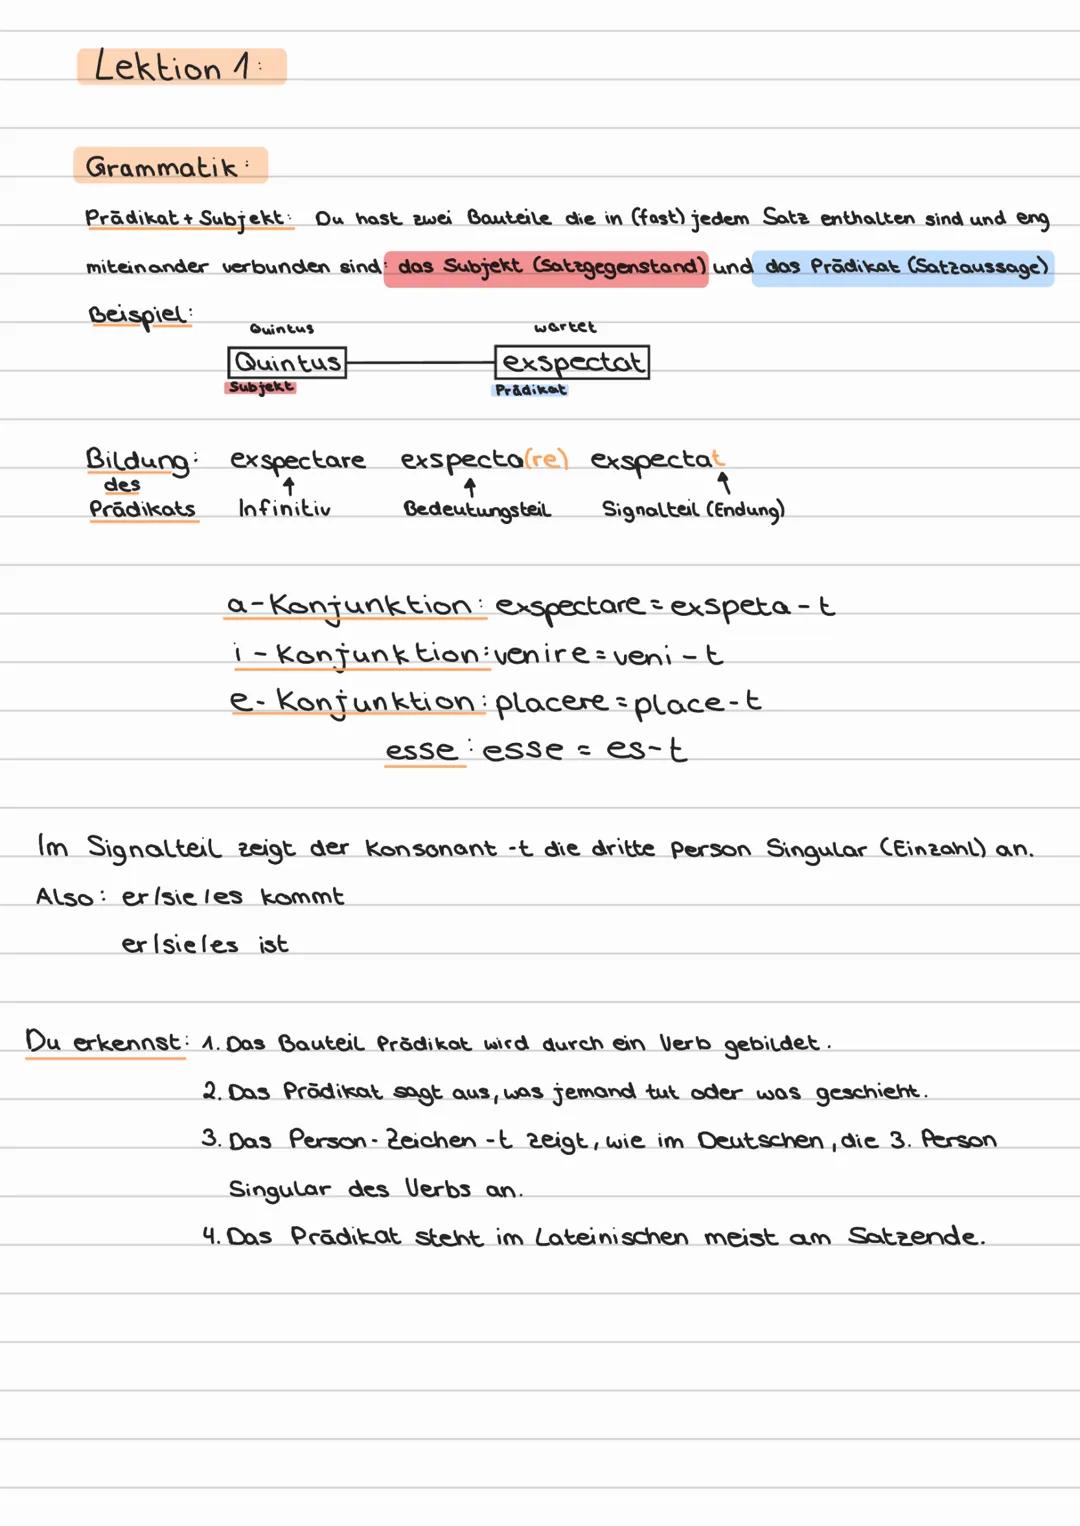 Lektion 1:
Grammatik:
Prädikat + Subjekt: Du hast zwei Bauteile die in (fast) jedem Satz enthalten sind und eng
miteinander verbunden sind: das Subjekt (Satzgegenstand) und das Prädikat (Satzaussage)
Beispiel:
Quintus wartet
Quintus exspectat
Subjekt Prädikat
Bildung: exspectare exspecta(re) exspectat
des
Prädikats Infinitiv Bedeutungsteil Signalteil (Endung)
a-Konjunktion: exspectare = exspeta - t
i - Konjunktion: venire = veni - t
e- Konjunktion: placere = place-t
esse: esse = es-t
Im Signalteil zeigt der Konsonant -t die dritte Person Singular (Einzahl) an.
Also: er/sie/es kommt
er/sie/es ist
Du erkennst: 1. Das Bauteil Prädikat wird durch ein Verb gebildet.
2. Das Prädikat sagt aus, was jemand tut oder was geschieht.
3. Das Person-Zeichen -t zeigt, wie im Deutschen, die 3. Person
Singular des Verbs an.
4. Das Prädikat steht im Lateinischen meist am Satzende.